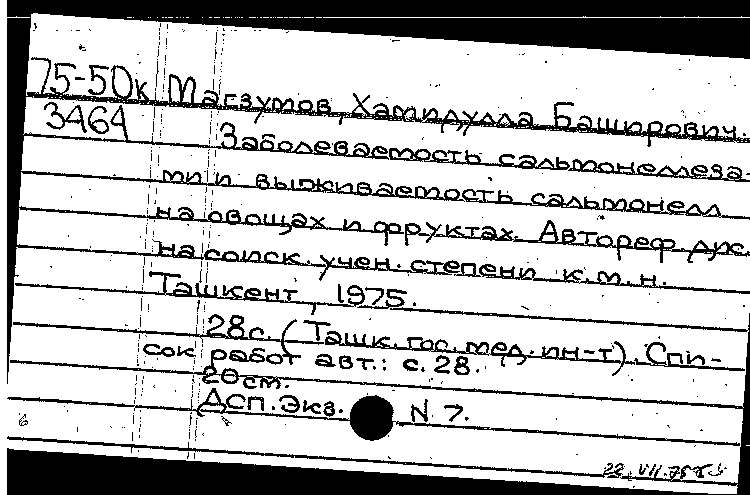 75-50к Магзумов, Хамидулла Баширович.
3464 Заболеваемость сальмонеллеза-
ми и выживаемость сальмонелл
на овощах и фруктах. Автореф. дис.
на соиск. учен. степени к.м.н.
Ташкент, 1975.
28с. (Ташк. гос. мед. ин-т). Спи-
сок работ авт.: с. 28.
20см.
ДСП. Экз. N 7.
22.VII.75